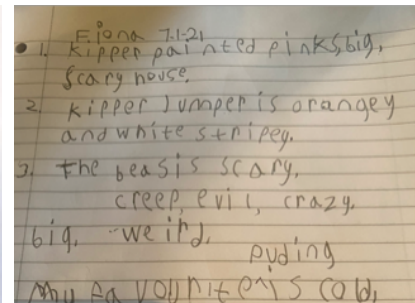 Fiona 7.1-21
1. Kipper painted pinks, big,
scary house.
2 Kipper Jumper is orangey
and white stripey.
3. the beas is scary,
creep, evil, crazy,
big, weird,
puding
My